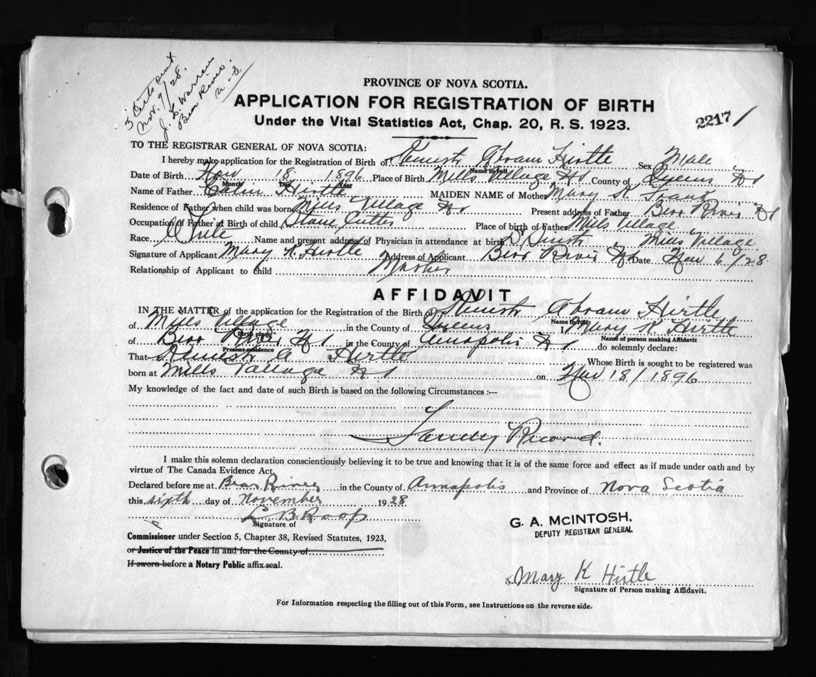 Nov. 9/28.
Bear River.
PROVINCE OF NOVA SCOTIA.
APPLICATION FOR REGISTRATION OF BIRTH
Under the Vital Statistics Act, Chap. 20, R. S. 1923.
2217/
TO THE REGISTRAR GENERAL OF NOVA SCOTIA:
I hereby make application for the Registration of Birth of Ernest Abram Hirtle Sex Male
Date of Birth Nov 18 1896 Place of Birth Mills Village N S County of Queens N S
Month Day Year
Name of Father Hirtle MAIDEN NAME of Mother Mary K
Residence of Father when child was born Mills Village N S Present address of Father Bear River N S
Occupation of Father at Birth of child Stave Cutter Place of birth of Father Mils Village
Race Name and present address of Physician in attendance at birth Dr Smith Mills Village
Signature of Applicant Mary K Hirtle Address of Applicant Bear River N S Date Nov 6/28
Relationship of Applicant to child Mother
AFFIDAVIT
IN THE MATTER of the application for the Registration of the Birth of Ernest Abram Hirtle
Name in full
of Mills Village in the County of Queens Mary K Hirtle
Name of person making Affidavit
of Bear River N S in the County of Annapolis N S do solemnly declare:
Present residence
That Ernest A Hirtle Whose Birth is sought to be registered was
born at Mills Vallage N S on Nov 18/1896
My knowledge of the fact and date of such Birth is based on the following Circumstances :—
Family Record.
I make this solemn declaration conscientiously believing it to be true and knowing that it is of the same force and effect as if made under oath and by
virtue of The Canada Evidence Act.
Declared before me at Bear River in the County of Annapolis and Province of Nova Scotia
this sixth day of November 1928
L. B. Roop
Signature of
Commissioner under Section 5, Chapter 38, Revised Statutes, 1923,
or Justice of the Peace in and for the County of
If sworn before a Notary Public affix seal.
G. A. McINTOSH,
DEPUTY REGISTRAR GENERAL
Mary K Hirtle
Signature of Person making Affidavit.
For Information respecting the filling out of this Form, see Instructions on the reverse side.